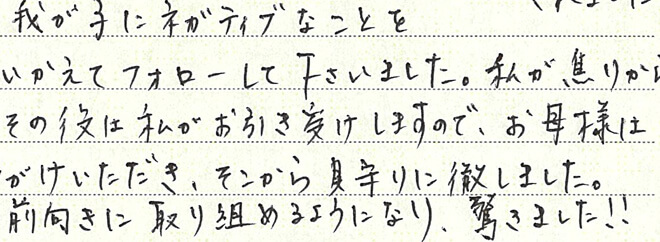 我が子にネガティブなことを
いかえてフォローして下さいました。私が焦りから
その役は私がお引き受けしますので、お母様は
がけいただき、そこから見守りに徹しました。
前向きに取り組めるようになり、驚きました!!